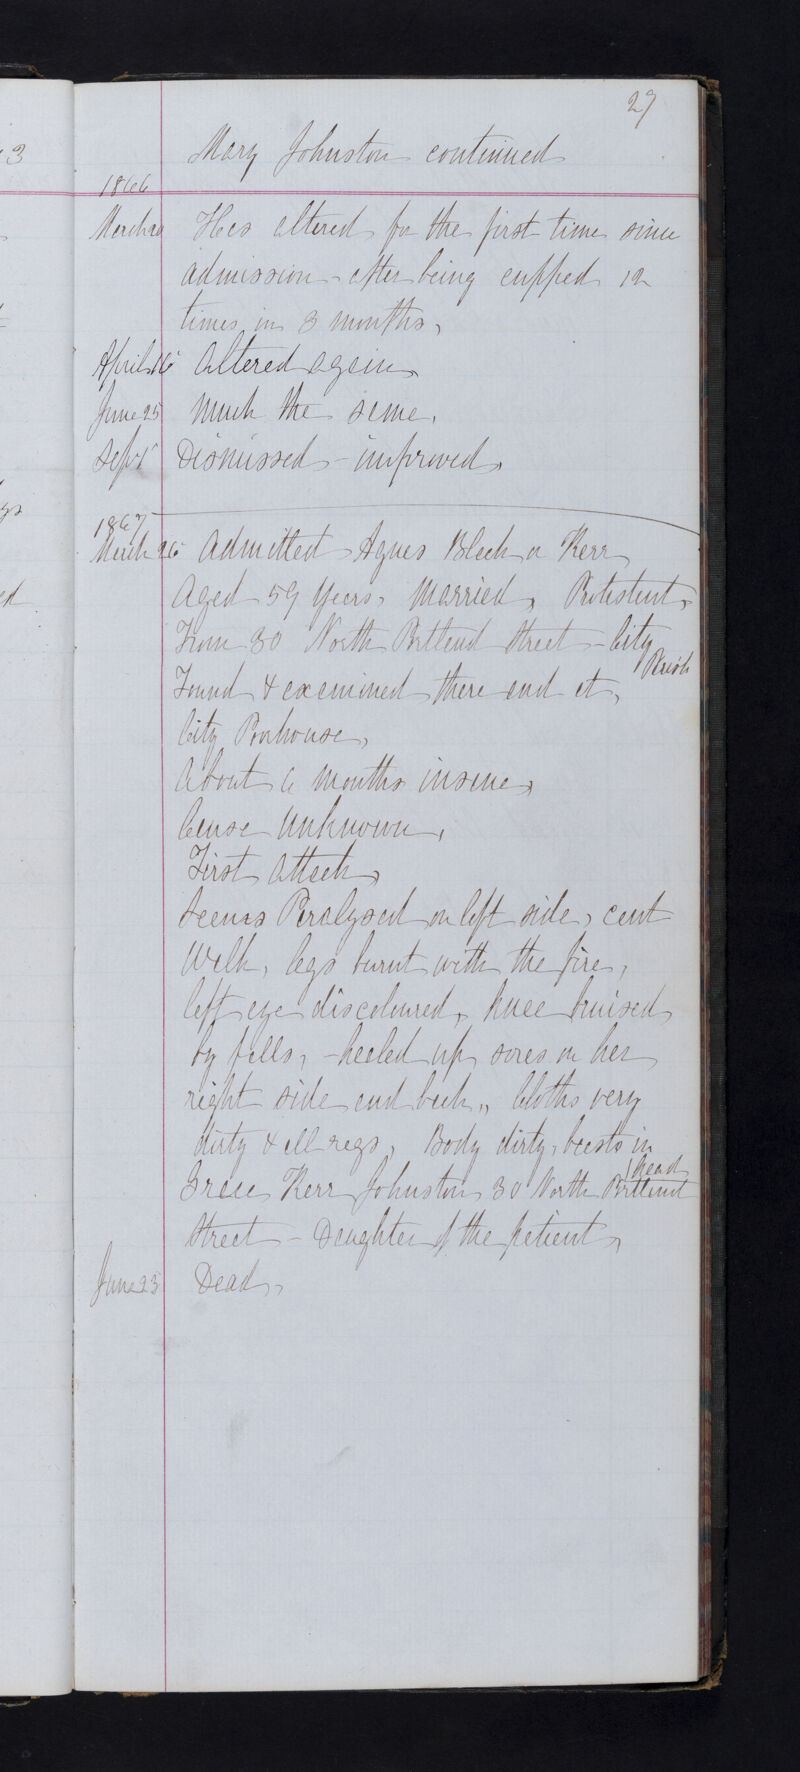 27
Mary Johnston continued
1866
March 20 Has altered for the first time since
admission - after being cupped 12
times in 3 months,
April 16 Altered again,
June 25 Much the same,
Sept 1 Dismissed - improved,
1867
March 26 Admitted Agnes Black or Kerr
Aged 59 years, Married, Protestant,
From 30 North Portland Street - City
Parish
Found & examined there and at,
City Poorhouse,
About 6 months insane,
Cause Unknown,
First Attack,
Seems Paralysed on left side, cant
Walk, legs burnt with the fire,
left eye discoloured, knee bruised
by falls, - healed up sores on her
right side and back,, Cloths very
dirty & all rags, Body dirty, beasts in
head
Grace Kerr Johnston 30 North Portland
Street - Daughter of the patient,
June 23 Dead,